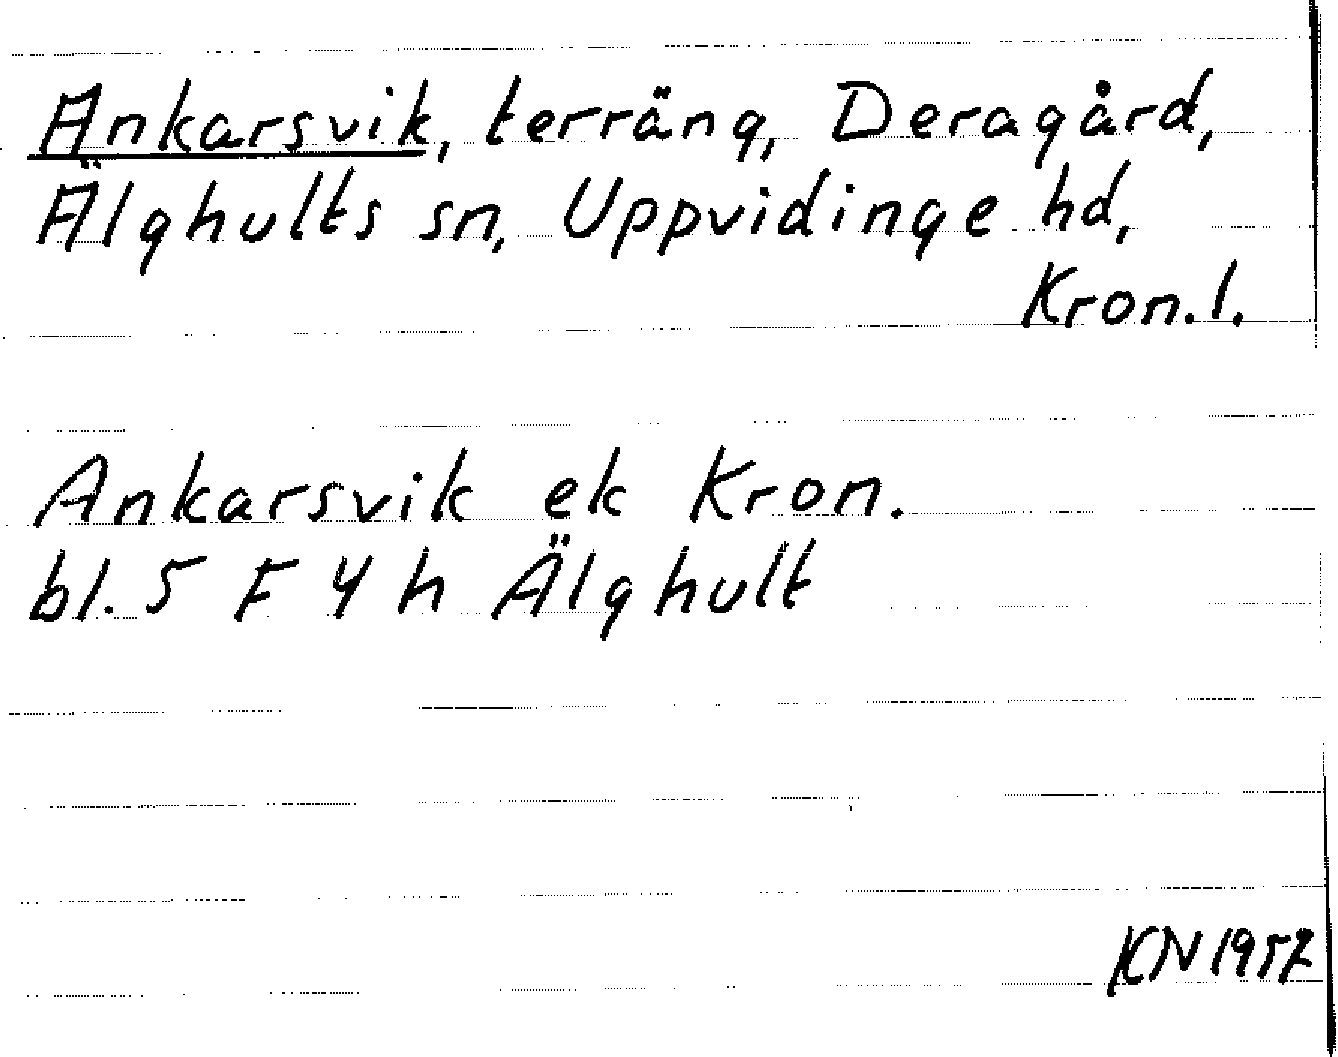 Ankarsvik, terräng, Deragård,
Älghults sn, Uppvidinge hd,
Kron. l.
Ankarsvik ek Kron.
bl. 5 F 4 h Älghult
KN 1957